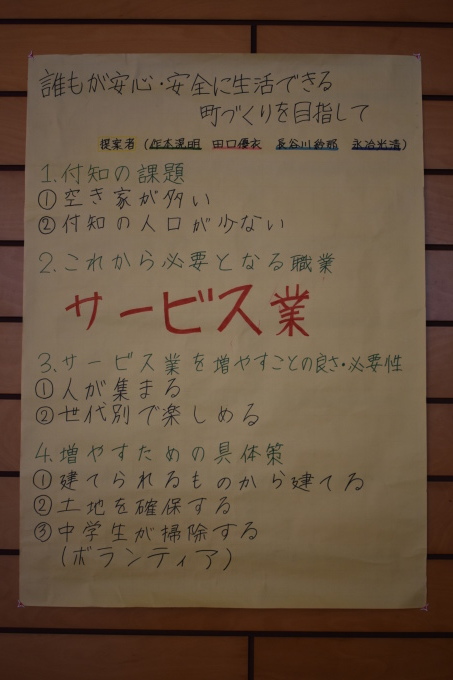 誰もが安心・安全に生活できる
町づくりを目指して
提案者（作本滉明 田口優衣 長谷川紗那 永冶光清）
1.付知の課題
①空き家が多い
②付知の人口が少ない
2.これから必要となる職業
サービス業
3.サービス業を増やすことの良さ・必要性
①人が集まる
②世代別で楽しめる
4.増やすための具体策
①建てられるものから建てる
②土地を確保する
③中学生が掃除する
（ボランティア）